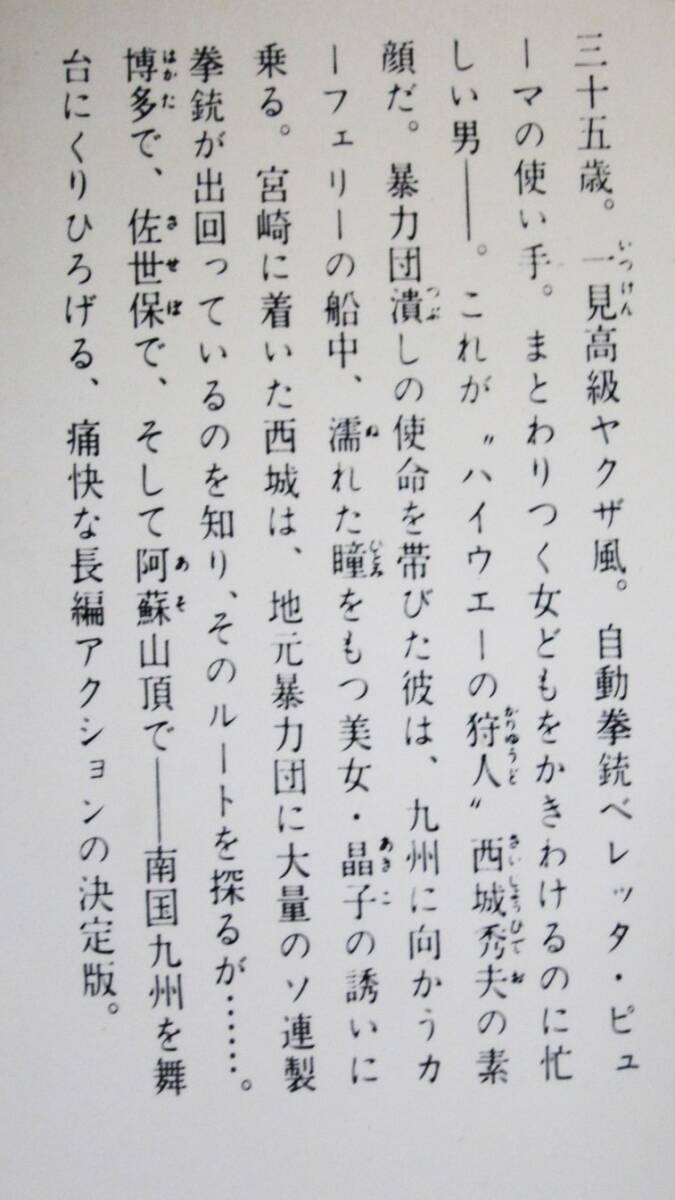 三十五歳。一見高級ヤクザ風。自動拳銃ベレッタ・ピュ
ーマの使い手。まとわりつく女どもをかきわけるのに忙
しい男――。これが〝ハイウエーの狩人〟西城秀夫の素
顔だ。暴力団潰しの使命を帯びた彼は、九州に向かうカ
ーフェリーの船中、濡れた瞳をもつ美女・晶子の誘いに
乗る。宮崎に着いた西城は、地元暴力団に大量のソ連製
拳銃が出回っているのを知り、そのルートを探るが……。
博多で、佐世保で、そして阿蘇山頂で――南国九州を舞
台にくりひろげる、痛快な長編アクションの決定版。